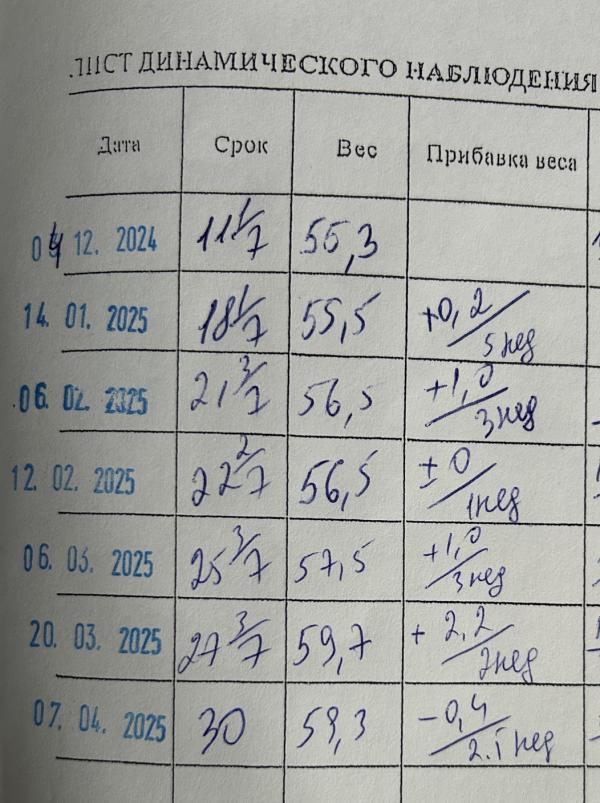 ЛИСТ ДИНАМИЧЕСКОГО НАБЛЮДЕНИЯ
Дата Срок Вес Прибавка веса
04 12. 2024 11 1/7 55,3
14. 01. 2025 18 1/7 55,5 +0,2/5 нед
06. 02. 2025 21 3/7 56,5 +1,0/3 нед
12. 02. 2025 22 2/7 56,5 ± 0/1 нед
06. 03. 2025 25 3/7 57,5 +1,0/3 нед
20. 03. 2025 27 3/7 59,7 + 2,2/2 нед
07. 04. 2025 30 59,3 -0,4/2.5 нед